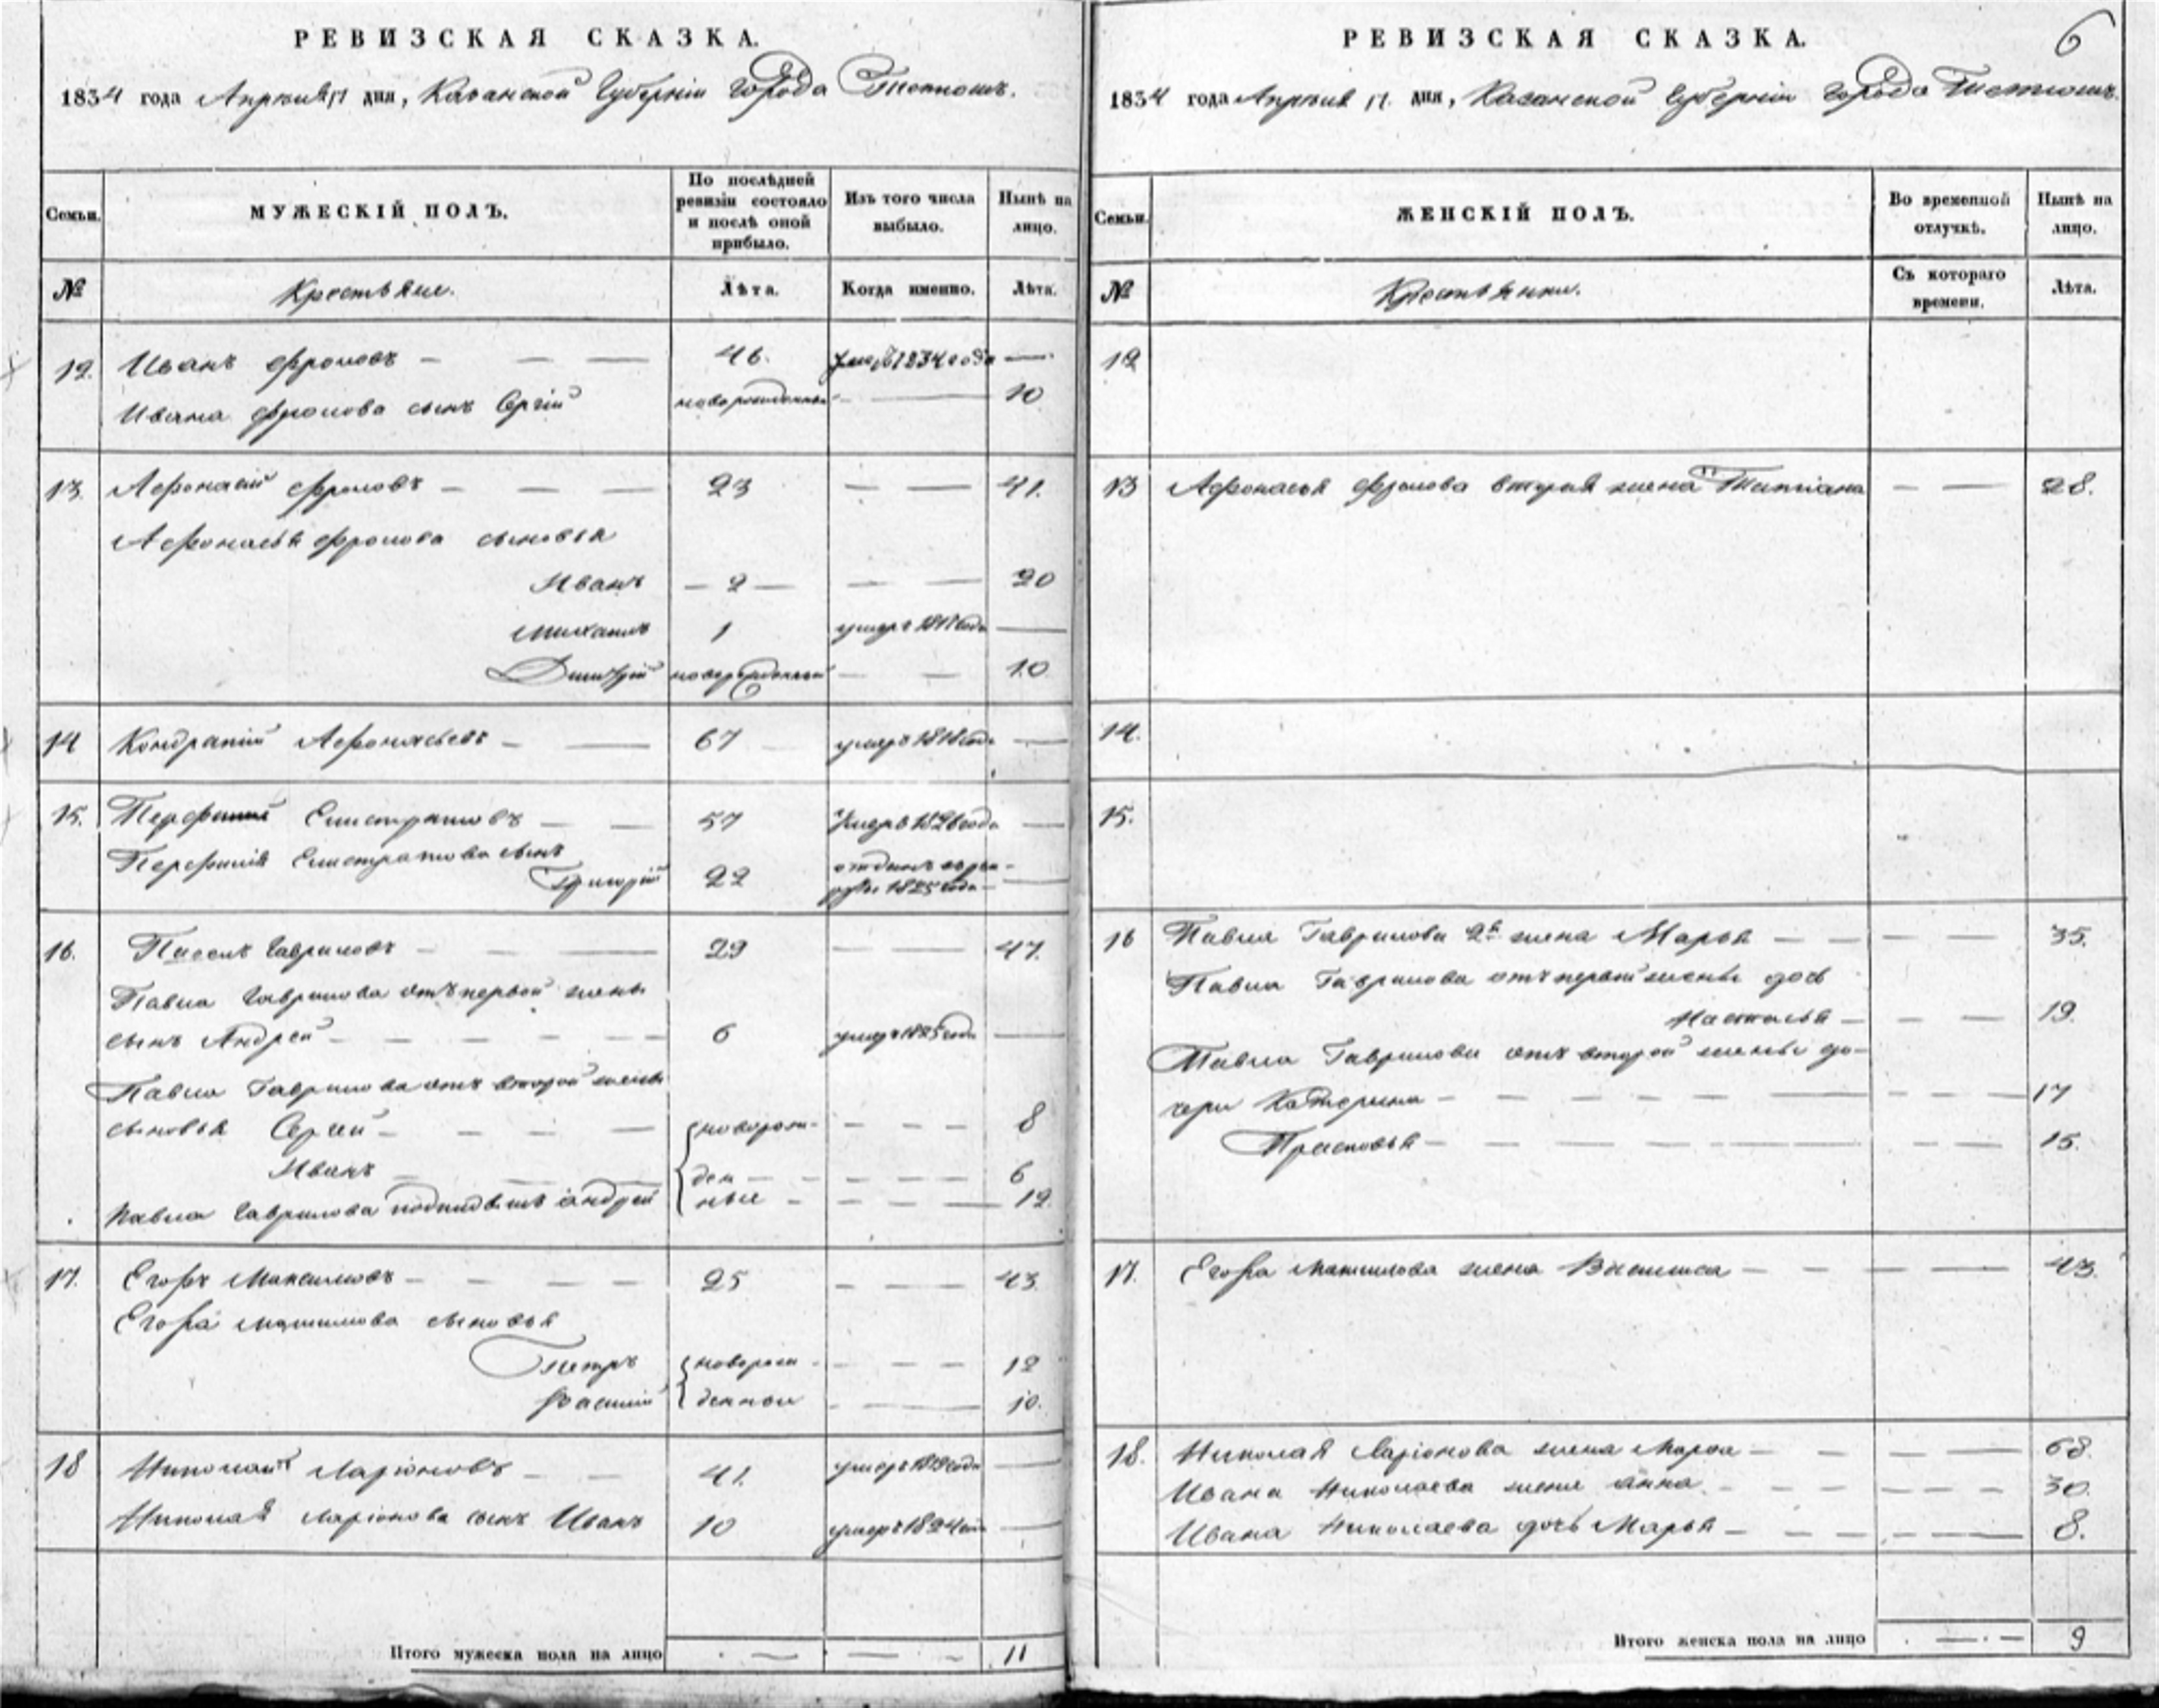 РЕВИЗСКАЯ СКАЗКА.
1834 года Апрѣля 17 дня, Казанской Губерніи города Тетюшъ.
Семьи.
МУЖЕСКІЙ ПОЛЪ.
По послѣдней ревизіи состояло и послѣ оной прибыло.
Изъ того числа выбыло.
Нынѣ на лицо.
№
Крестьяне.
Лѣта.
Когда именно.
Лѣта.
12. Иванъ Фроловъ — 46. 1834 года —
Ивана Фролова сынъ Сергій новорожденный — 10
13. Афонасий Фроловъ — 23 — 41.
Афонасья Фролова сыновья
Иванъ — 2 — 20
Михаилъ 1 умеръ года —
Димитрій новорожденный — 10
14 Кондратий Афонасьевъ — 67 умеръ 1818 года —
15. Перфилий Елистратовъ — 57 Умеръ 1826 года —
Перфилия Елистратова сынъ
Григорій 22 отданъ въ рек-
руты 1825 года —
16. Павелъ Гавриловъ — 29 — 47.
Павла Гаврилова отъ первой жены
сынъ Андрей — 6 умеръ 1825 года —
Павла Гаврилова отъ второй жены
сыновья Сергей — новорож- — 8
Иванъ — ден — 6
Павла Гаврилова Андрей ные — 12.
17. Егоръ Максимовъ — 25 — 43.
Егора Максимова сыновья
Петръ новорож- — 12
денные — 10.
18 Николай Ларіоновъ — 41. умеръ года —
Николая Ларіонова сынъ Иванъ 10 умеръ 1824 года —
Итого мужеска пола на лицо — — 11
РЕВИЗСКАЯ СКАЗКА.
6
1834 года Апрѣля 17 дня, Казанской Губерніи города Тетюшъ.
Семьи.
ЖЕНСКІЙ ПОЛЪ.
Во временной отлучкѣ.
Нынѣ на лицо.
№
Крестьянки.
Съ котораго времени.
Лѣта.
12
13 Афонасья Фролова вторая жена Татіана — 28.
14.
15.
16 Павла Гаврилова 2я жена Марья — 35.
Павла Гаврилова отъ первой жены дочь
Настасья — 19.
Павла Гаврилова отъ второй жены до-
чери Катерина — 17
Прасковья — 15.
17. Егора Максимова жена Василиса — 43.
18. Николая Ларіонова жена Марфа — 68.
Ивана Николаева жена Анна — 30.
Ивана Николаева дочь Марья — 8.
Итого женска пола на лицо — 9